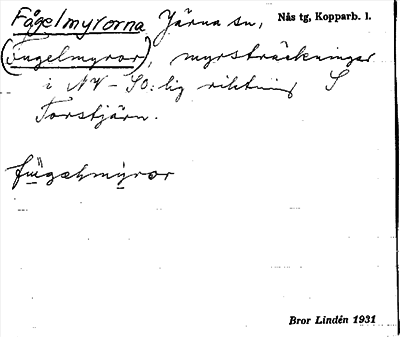 Fågelmyrorna Järna sn, Nås tg, Kopparb. l.
(Fugelmyror), myrsträckningar
i NV–SO:lig riktning S
Torstjärn.
Bror Lindén 1931